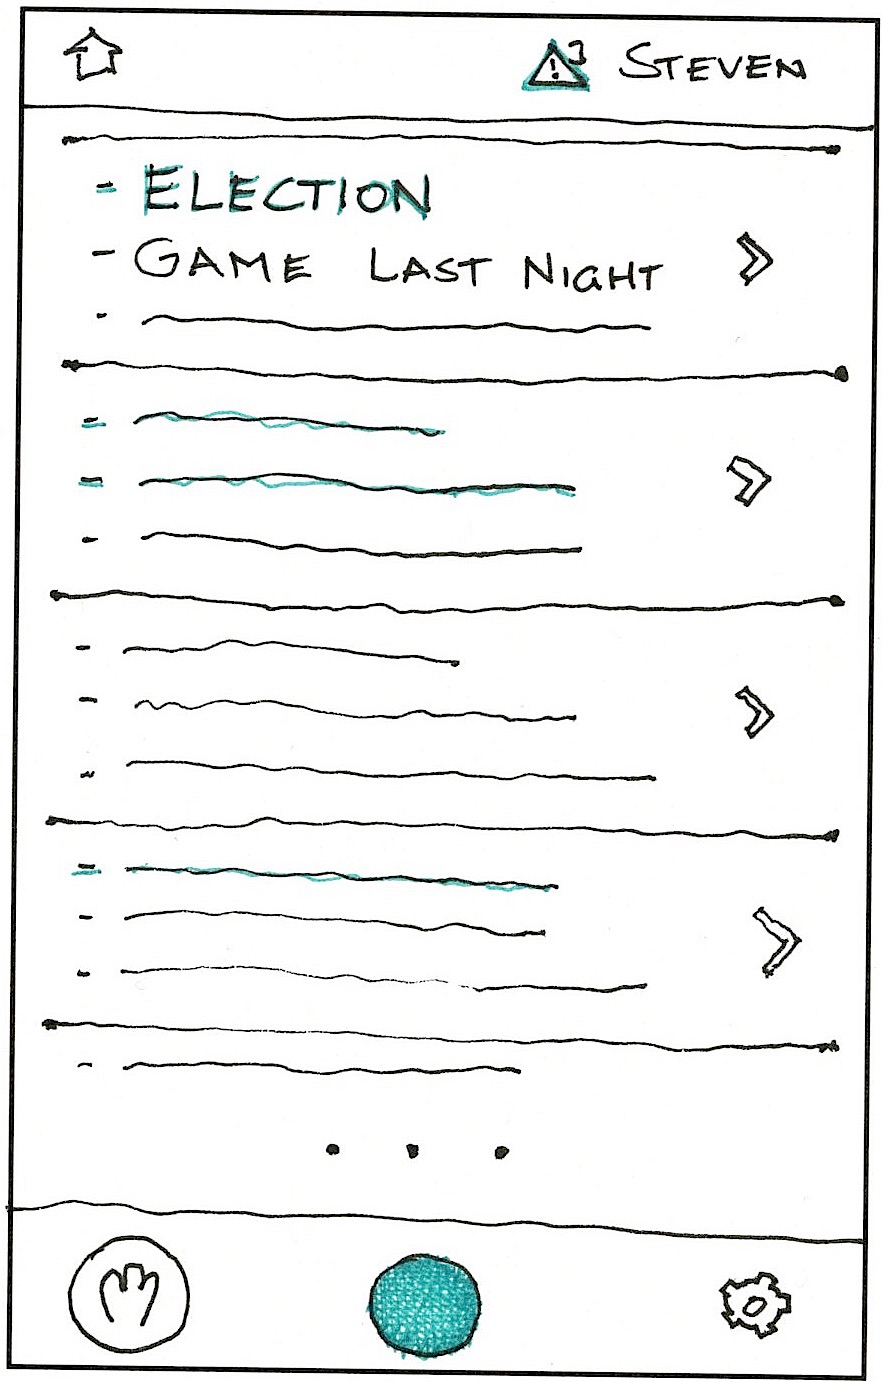 ! 3 STEVEN
- ELECTION
- GAME LAST NIGHT